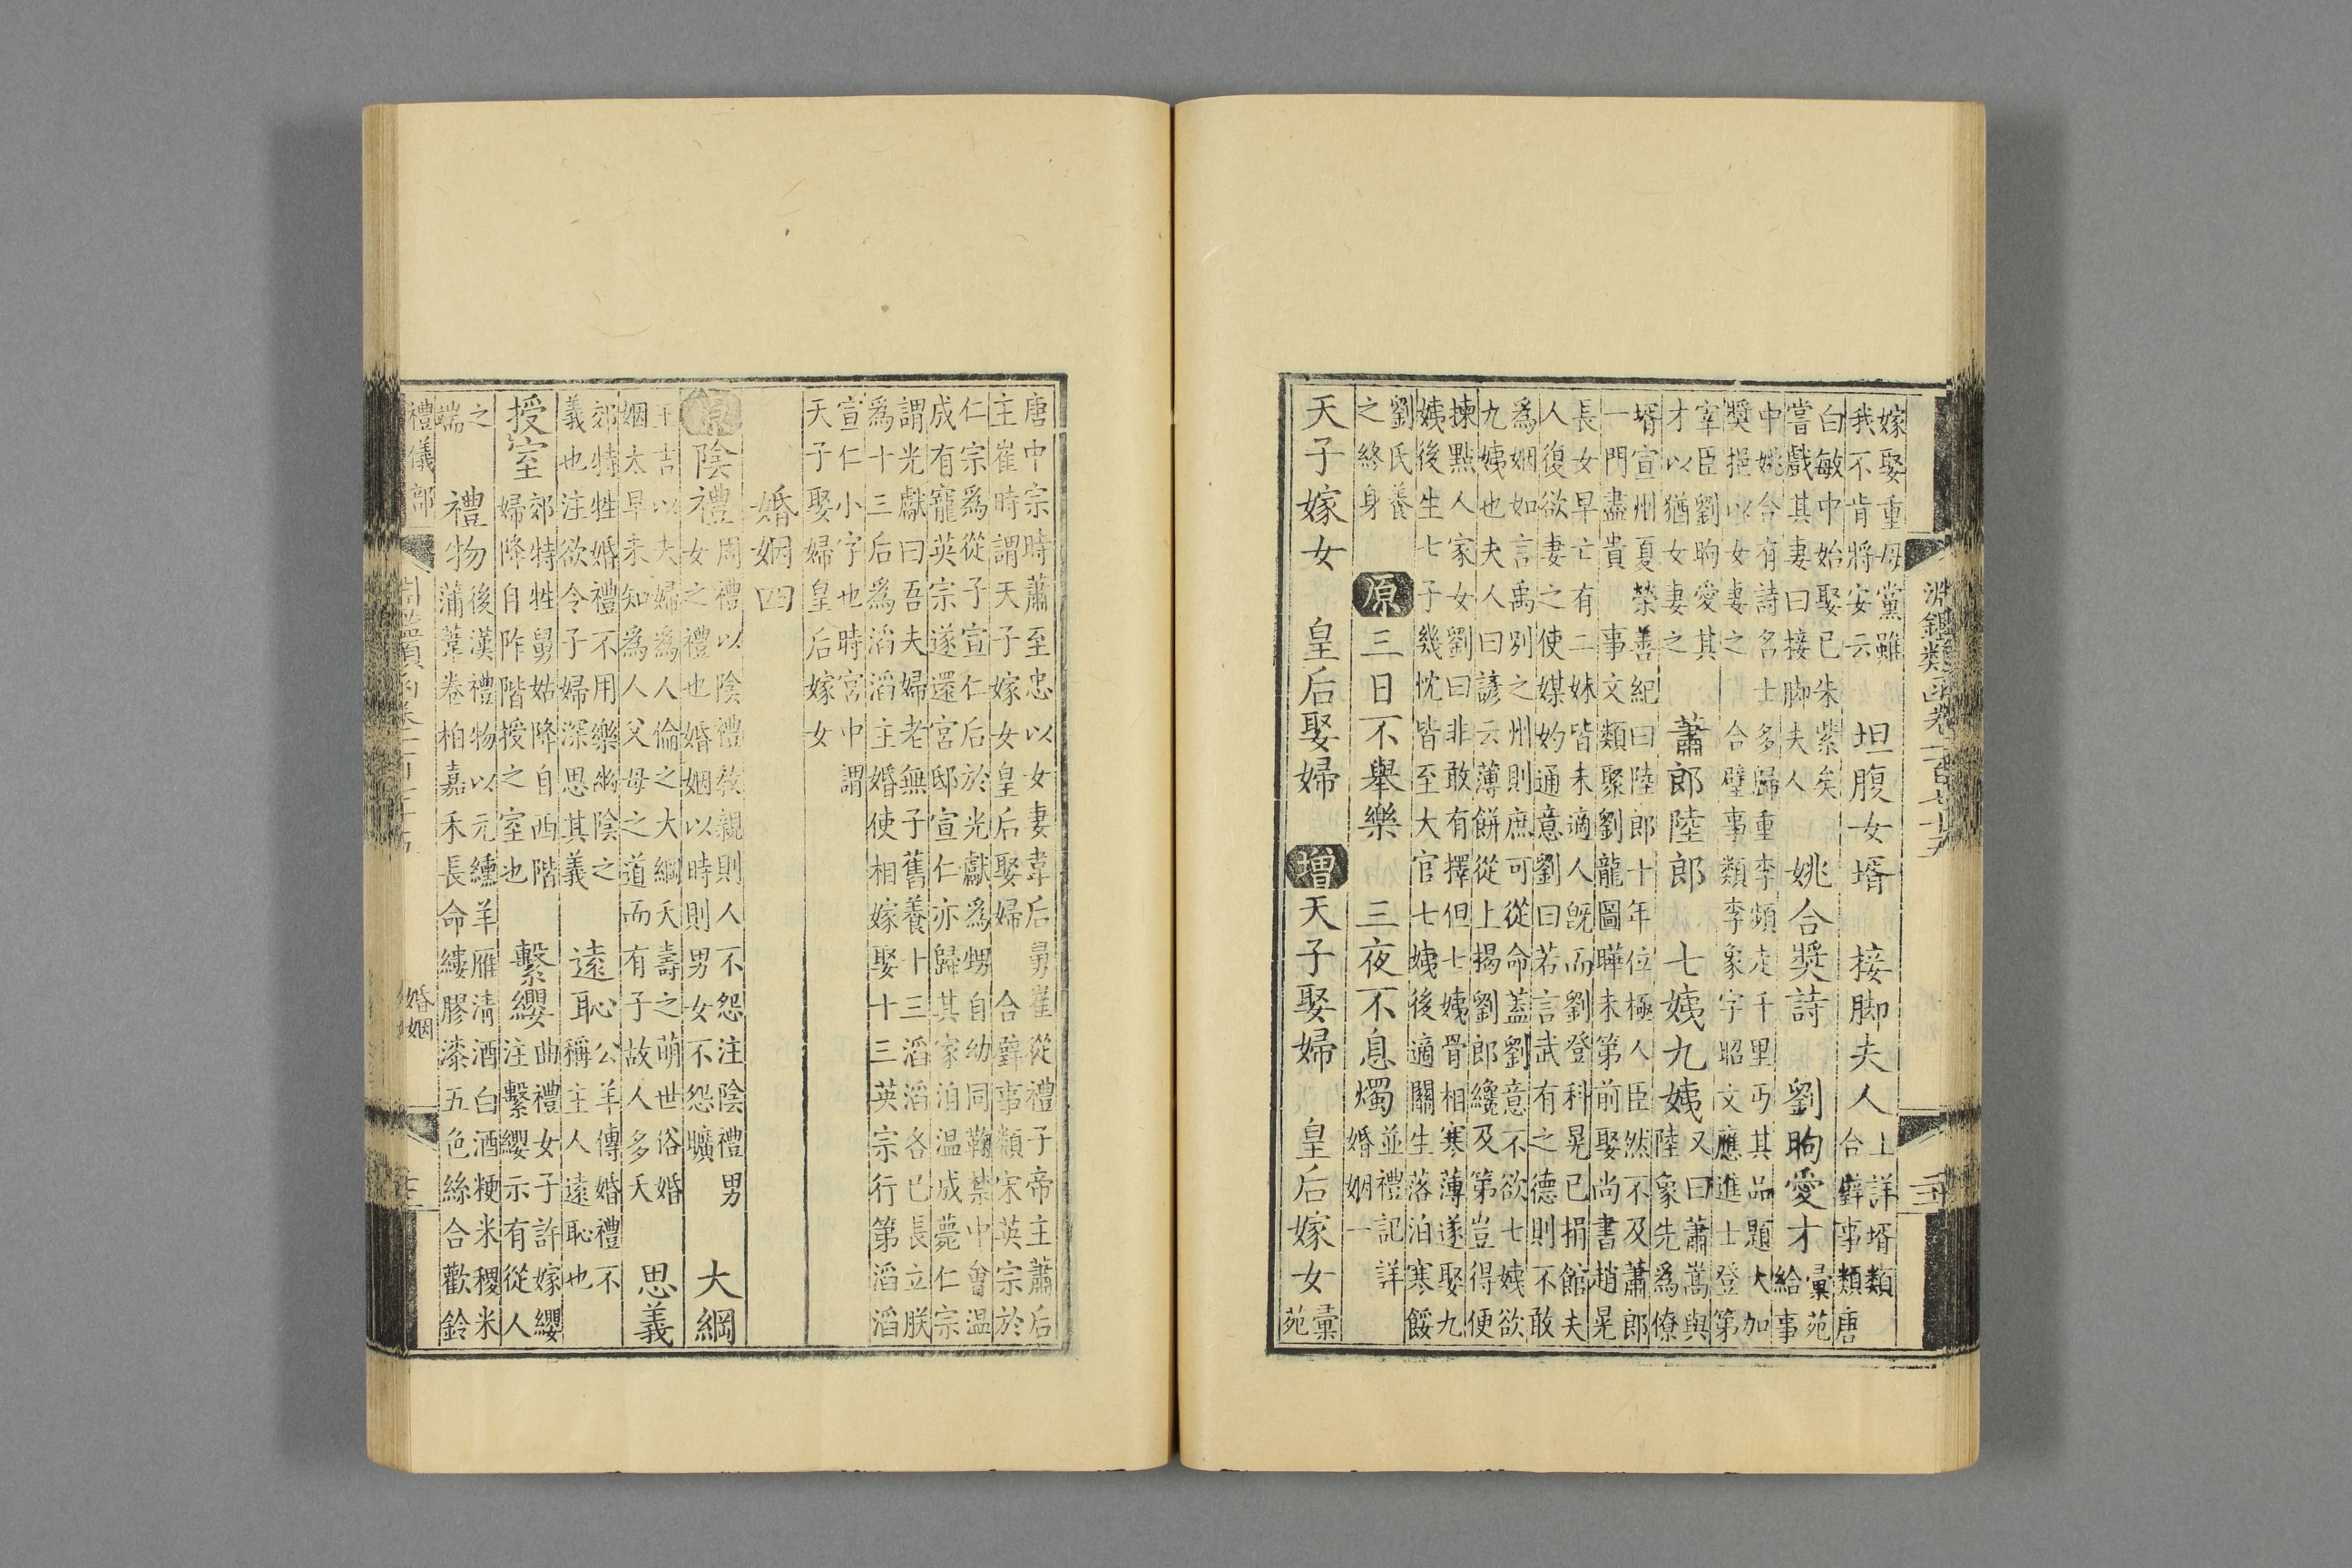 淵鑑類函卷一百七十五
嫁娶重毋黨雖
我不肯將安云
坦腹女壻　接脚夫人
上詳壻類
合璧事類唐
白敏中始娶已朱紫矣
嘗戲其妻曰接脚夫人
姚合奬詩　劉晌愛才
彙苑
給事
中姚合有詩名士多歸重李頻走千里丐其品題大加
奬挹以女妻之　合璧事類李象字昭文應進士登第
宰臣劉晌愛其
才以猶女妻之
蕭郎陸郎　七姨九姨
又曰蕭嵩與
陸象先爲僚
壻宣州夏榮善紀曰陸郎十年位極人臣然不及蕭郎
一門盡貴　事文類聚劉龍圖曄未第前娶尚書趙晃
長女早亡有二妹皆未適人既而劉登科晃已捐館夫
人復欲妻之使媒妁通意劉曰若言武有之德則不敢
爲姻如言禹别之州則庶可從命葢劉意不欲七姨欲
九姨也夫人曰諺云薄餅從上揭劉郎纔及第豈得便
揀點人家女劉曰非敢有擇但七姨骨相寒薄遂娶九
姨後生七子幾忱皆至大官七姨後適關生落泊寒餒
劉氏養
之終身
原　三日不舉樂　三夜不息燭
並禮記詳
婚姻一
天子嫁女　皇后娶婦　增　天子娶婦　皇后嫁女
彙
苑
唐中宗時蕭至忠以女妻韋后舅崔從禮子帝主蕭后
主崔時謂天子嫁女皇后娶婦　合璧事類宋英宗於
仁宗爲從子宣仁后於光獻爲甥自幼同鞠禁中會温
成有寵英宗遂還宮邸宣仁亦歸其家洎温成薨仁宗
謂光獻曰吾夫婦老無子舊養十三滔滔各已長立朕
爲十三后爲滔滔主婚使相嫁娶十三英宗行第滔滔
宣仁小字也時宮中謂
天子娶婦皇后嫁女
婚姻四
原　陰禮
周禮以陰禮敎親則人不怨注陰禮男
女之禮也婚姻以時則男女不怨曠
大綱
王吉以夫婦爲人倫之大綱夭壽之萌世俗婚
姻太早未知爲人父母之道而有子故人多夭
思義
郊特牲婚禮不用樂幽陰之
義也注欲令子婦深思其義
遠恥
公羊傳婚禮不
稱主人遠恥也
授室
郊特牲舅姑降自西階
婦降自阼階授之室也
繫纓
曲禮女子許嫁纓
注繫纓示有從人
之
端
禮物
後漢禮物以元纁羊雁清酒白酒粳米稷米
蒲葦卷柏嘉禾長命縷膠漆五色絲合歡鈴
禮儀部
婚姻